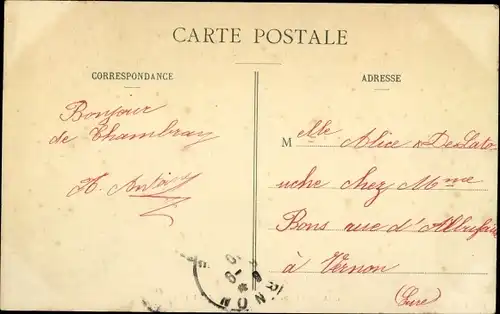 CARTE POSTALE
CORRESPONDANCE
Bonjour
de Chambray
ADRESSE
Melle Alice DeLato-
uche chez Mme
Bons rue d'Albufera
à Vernon
(Eure)